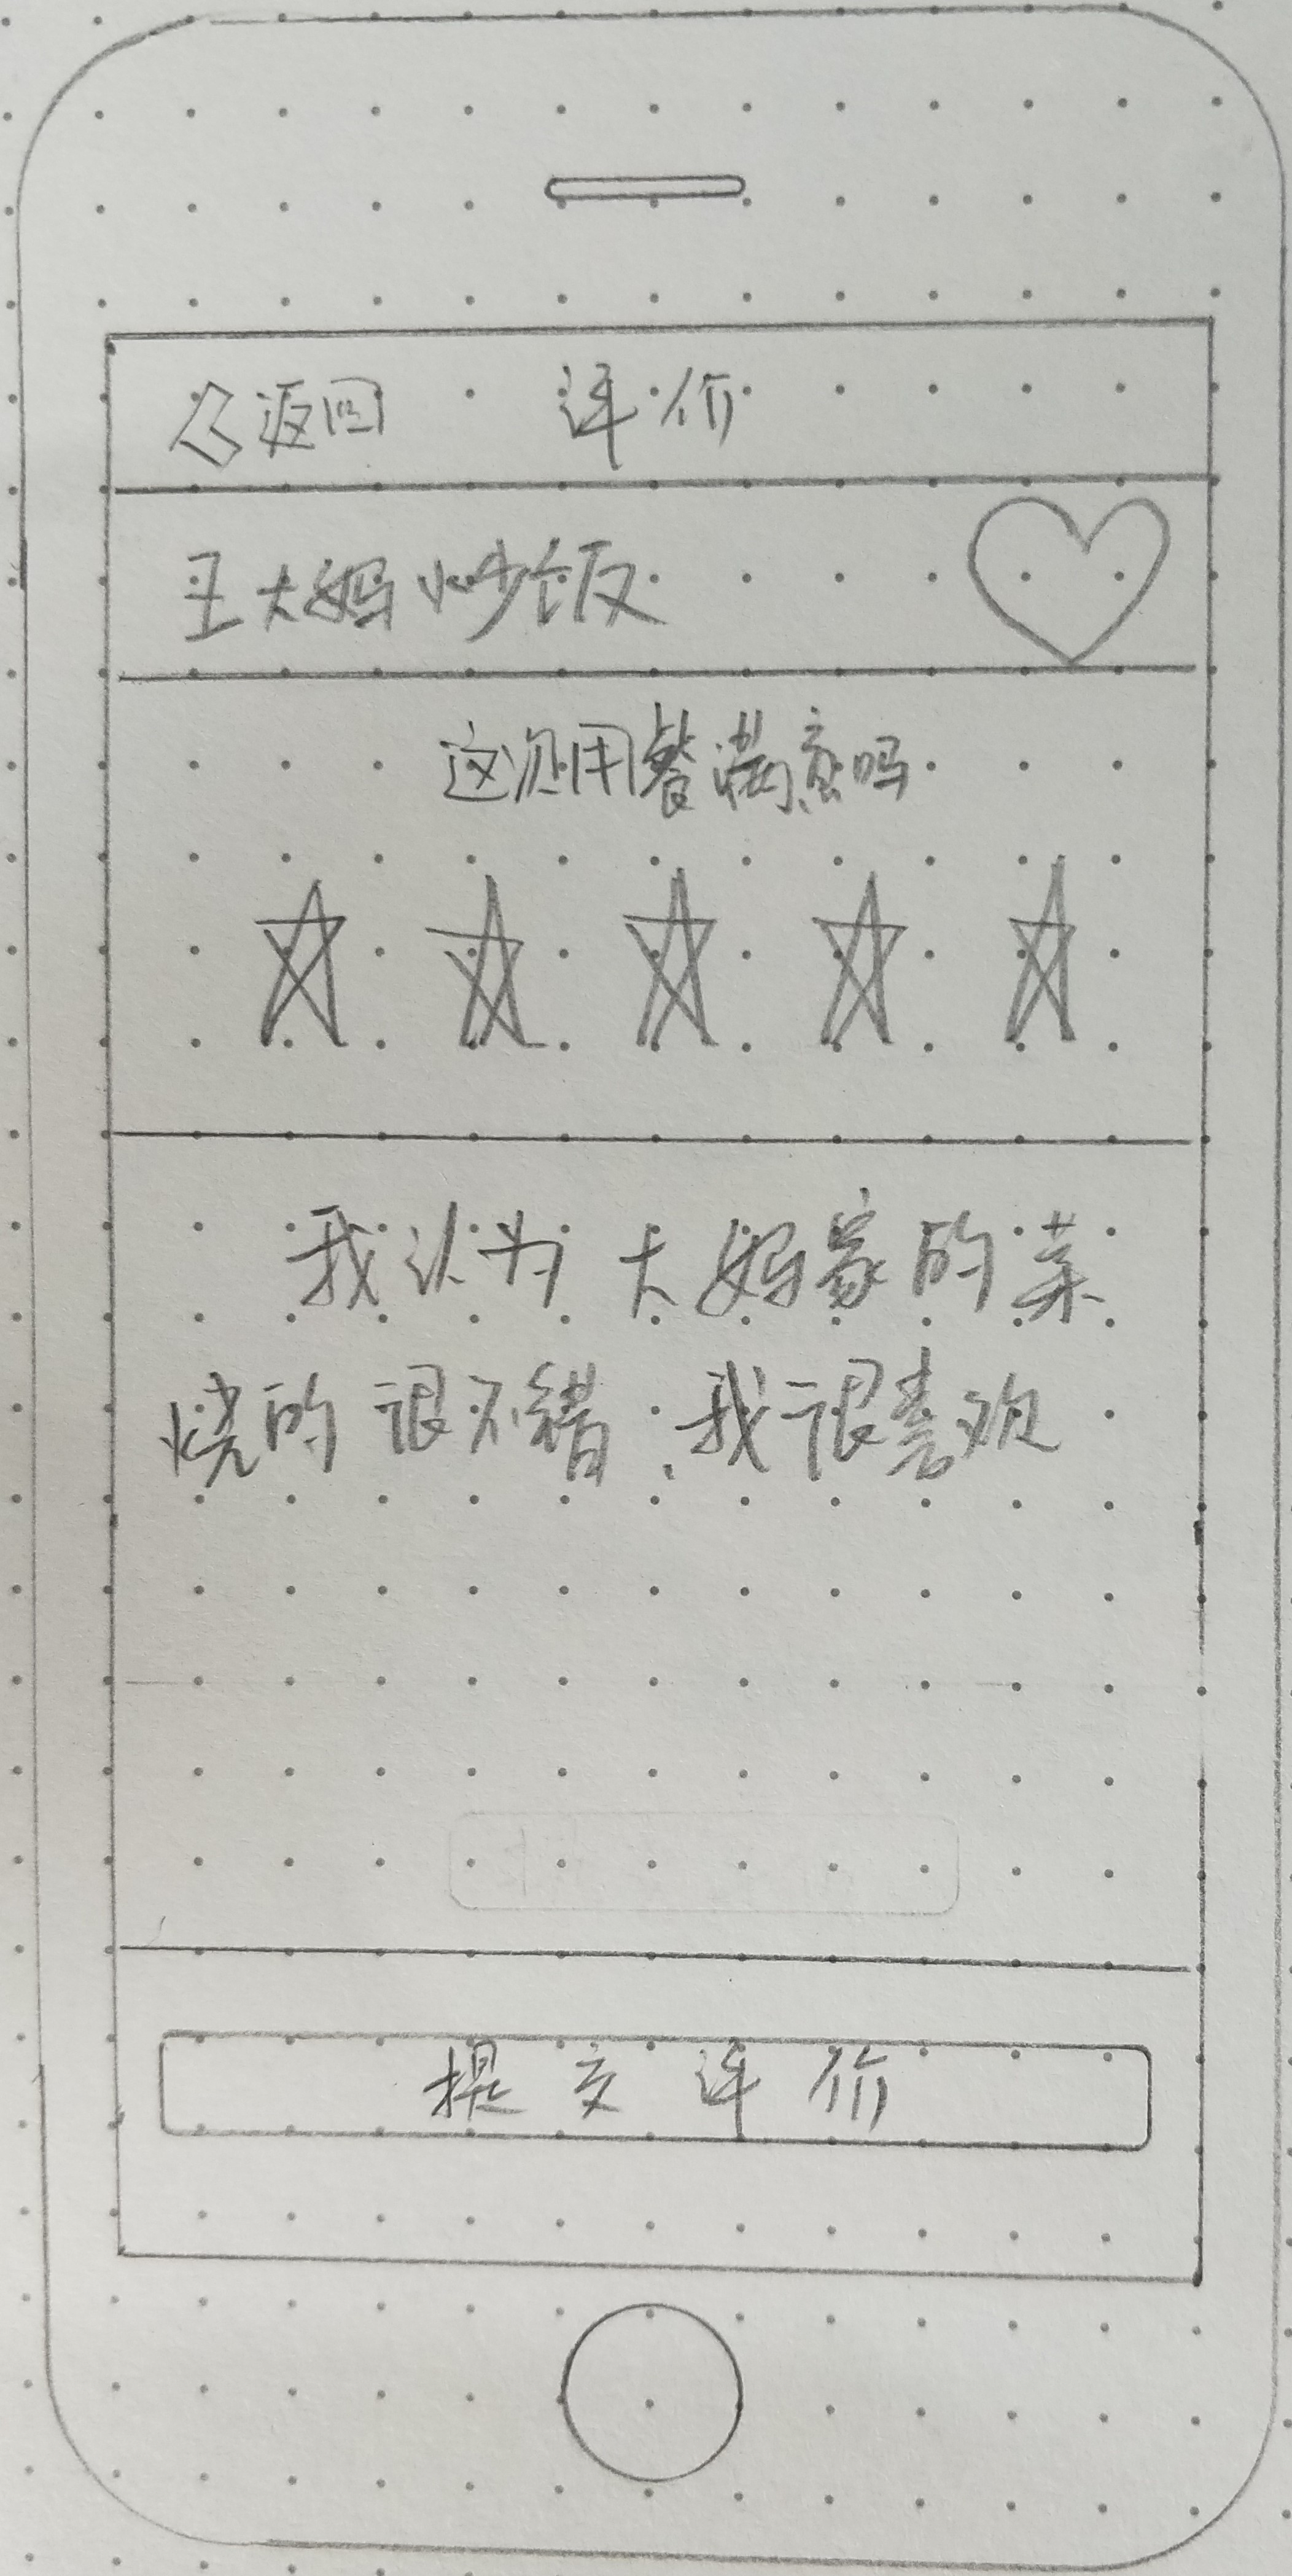 返回 评价
王大妈炒饭
这次用餐满意吗
我认为大妈家的菜
烧的很不错,我很喜欢
提交评价